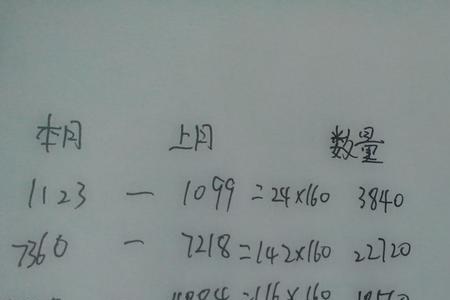 本月 上月 数量
1123 — 1099 = 24×160 3840
7360 — 7218 = 142×160 22720
=116×160